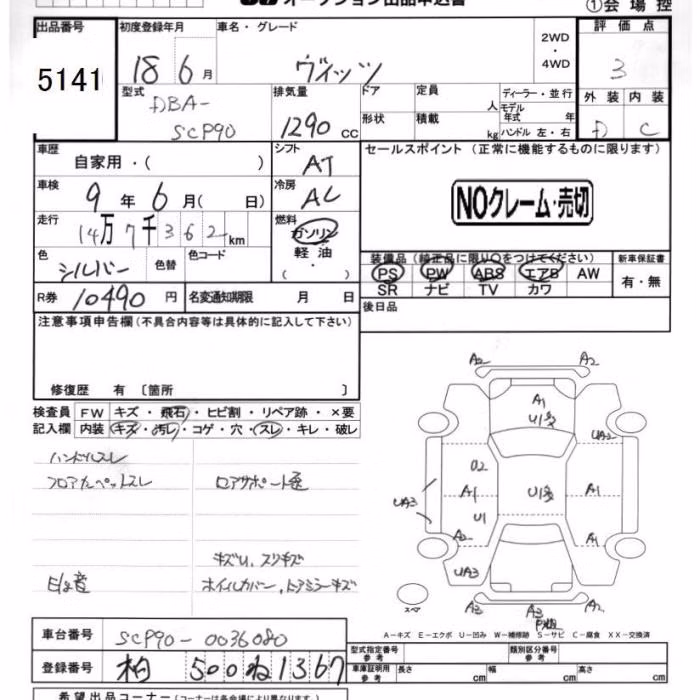 オークション出品申込書
①会場控
出品番号
5141
初度登録年月
18 6月
車名・グレード
ヴィッツ
2WD
・
4WD
評価点
3
型式
DBA-
SCP90
排気量
1290 cc
ドア
形状
定員 人
積載 kg
ディーラー・並行
モデル
年式 年
ハンドル 左・右
外装 内装
D C
車歴
自家用・( )
シフト
AT
セールスポイント(正常に機能するものに限ります)
NOクレーム・売切
車検
9年 6月( 日)
冷房
AC
走行
14万7千362km
燃料
ガソリン
軽油
( ・ )
色
シルバー
色替
色コード
装備品(純正品に限り○をつけてください)
PS PW ABS エアB AW
SR ナビ TV カワ
新車保証書
有・無
R券 10490円
名変通知期限 月 日
後日品
注意事項申告欄(不具合内容等は具体的に記入して下さい)
修復歴 有 〔箇所 〕
検査員
記入欄
FW キズ・飛石・ヒビ割・リペア跡・×要
内装 キズ・汚レ・コゲ・穴・スレ・キレ・破レ
ハンドルスレ
フロアカーペットスレ
ロアサポート
キズU、スリキズ
ホイルカバー、ドアミラーキズ
A2 A2
A1
U1多
UA2
U2
A1
U1多
A1
UA3
U1
A2
A1
UA3
A3 A3
A2
スペア
A-キズ E-エクボ U-凹み W-補修跡 S-サビ C-腐食 XX-交換済
車台番号
SCP90-0036080
登録番号
柏 500 ね 1367
型式指定番号
参考
類別区分番号
参考
車庫証明用
参考
長さ cm
幅 cm
高さ cm
希望出品コーナー